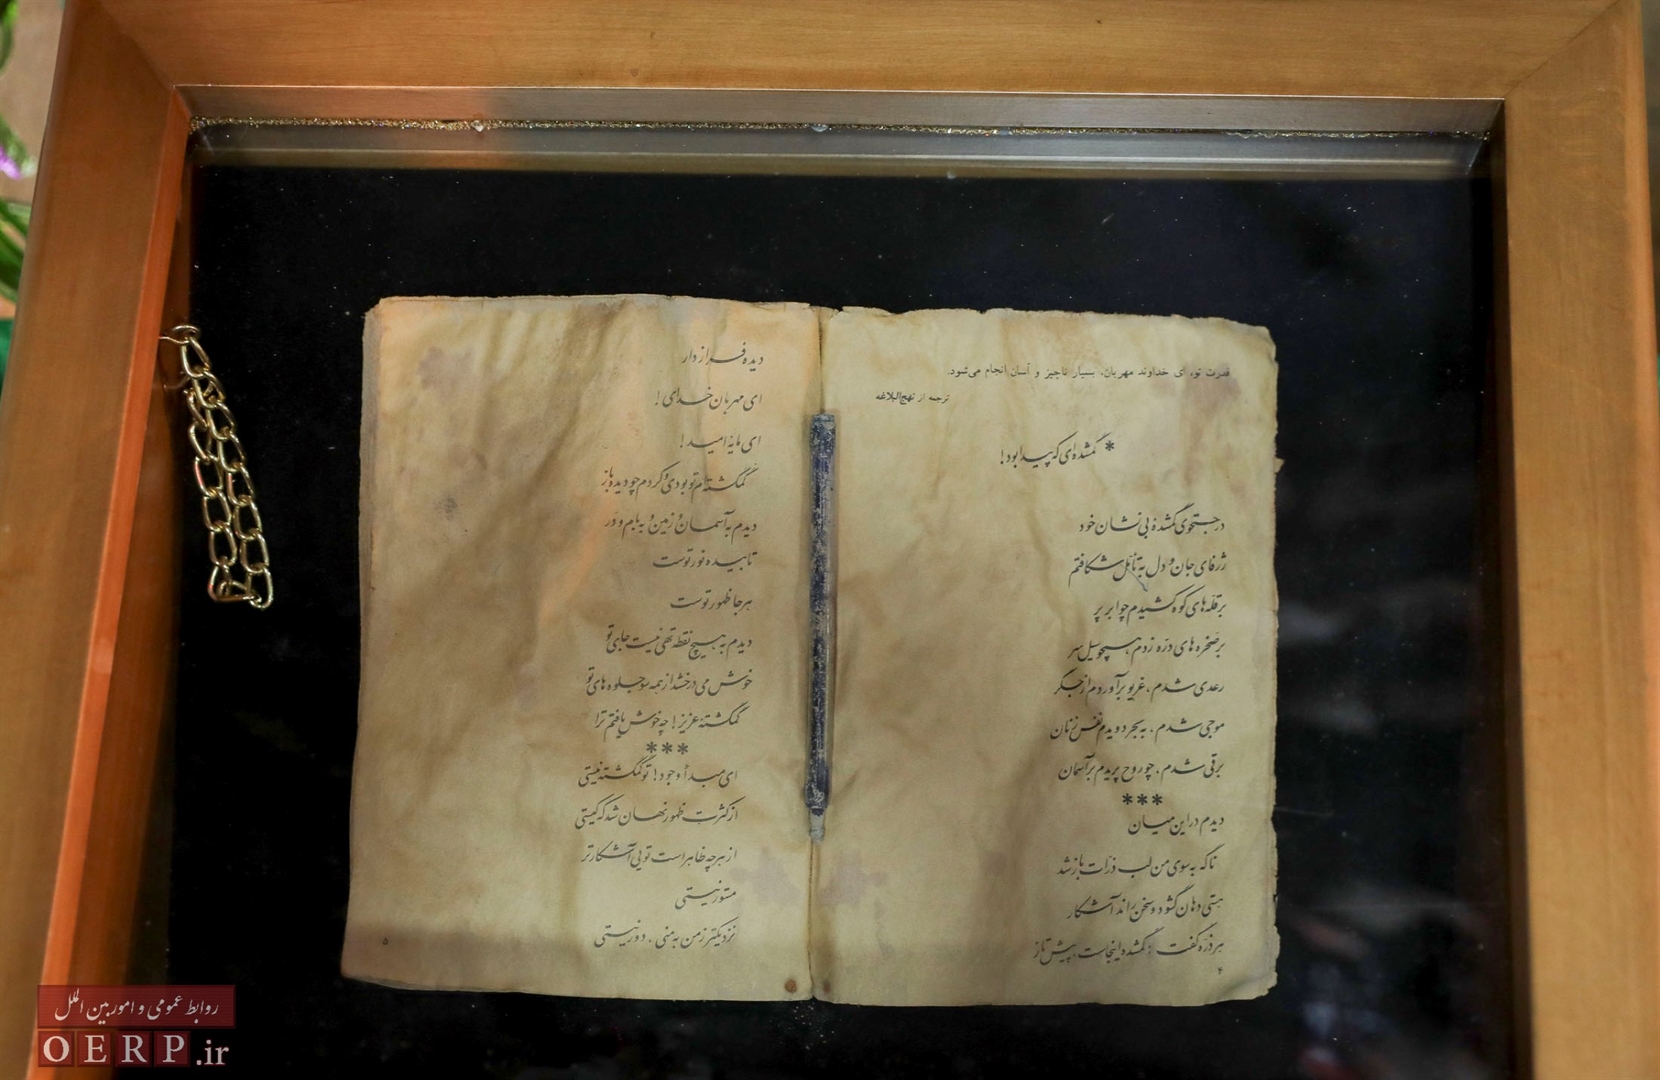 قدرت تو، ای خداوند مهربان، بسیار ناچیز و آسان انجام می‌شود.
ترجمه از نهج‌البلاغه
* گمشده‌ای که پیدا بود!
در جستجوی گمشدهٔ بی‌نشان خود
ژرفای جان و دل به تأمل شکافتم
بر قله‌های کوه کشیدم چو ابر پر
بر صخره‌های دره زدم همچو سیل سر
رعدی شدم، غریو برآوردم از جگر
موجی شدم، به بحر دویدم نفس زنان
برقی شدم، چو روح پریدم بر آسمان
***
دیدم در این میان
ناگه به سوی من لب ذرات باز شد
هستی دهان گشود و سخن راند آشکار
هر ذره گفت: گمشده اینجاست، پیش تاز
۴
دیده فراز دار
ای مهربان خدای!
ای مایهٔ امید!
گمگشته‌ام تو بودی و کردم چو دیده باز
دیدم به آسمان و زمین و به بام و در
تابیده نور توست
هر جا ظهور توست
دیدم به هیچ نقطه تهی نیست جای تو
خوش می‌درخشد از همه سو جلوه‌های تو
گمگشتهٔ عزیز! چه خوش یافتم ترا
***
ای مبدأ وجود! تو گمگشته نیستی
از کثرت ظهور نهان شد که کیستی
از هر چه ظاهر است تویی آشکارتر
مستور نیستی
نزدیکتر ز من به منی، دور نیستی
۵
روابط عمومی و امور بین الملل
OERP.ir